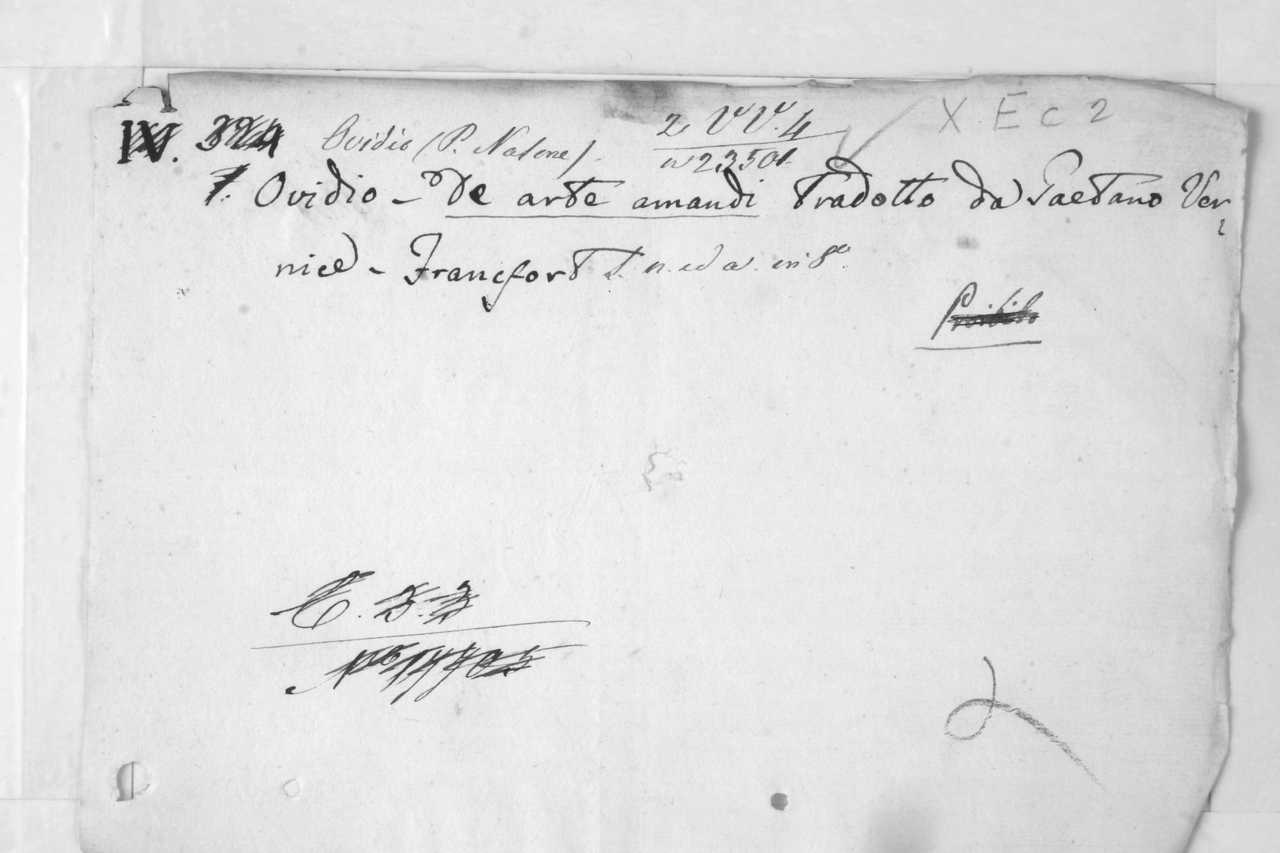 X. E c 2
IV. 324 Ovidio (P. Nasone). 2 VV. 4
n 23501
1. Ovidio - De arte amandi tradotto da Gaetano Ver
nice - Francfort S. n. ed a. in 8º.
Proibito
C. 3. 3